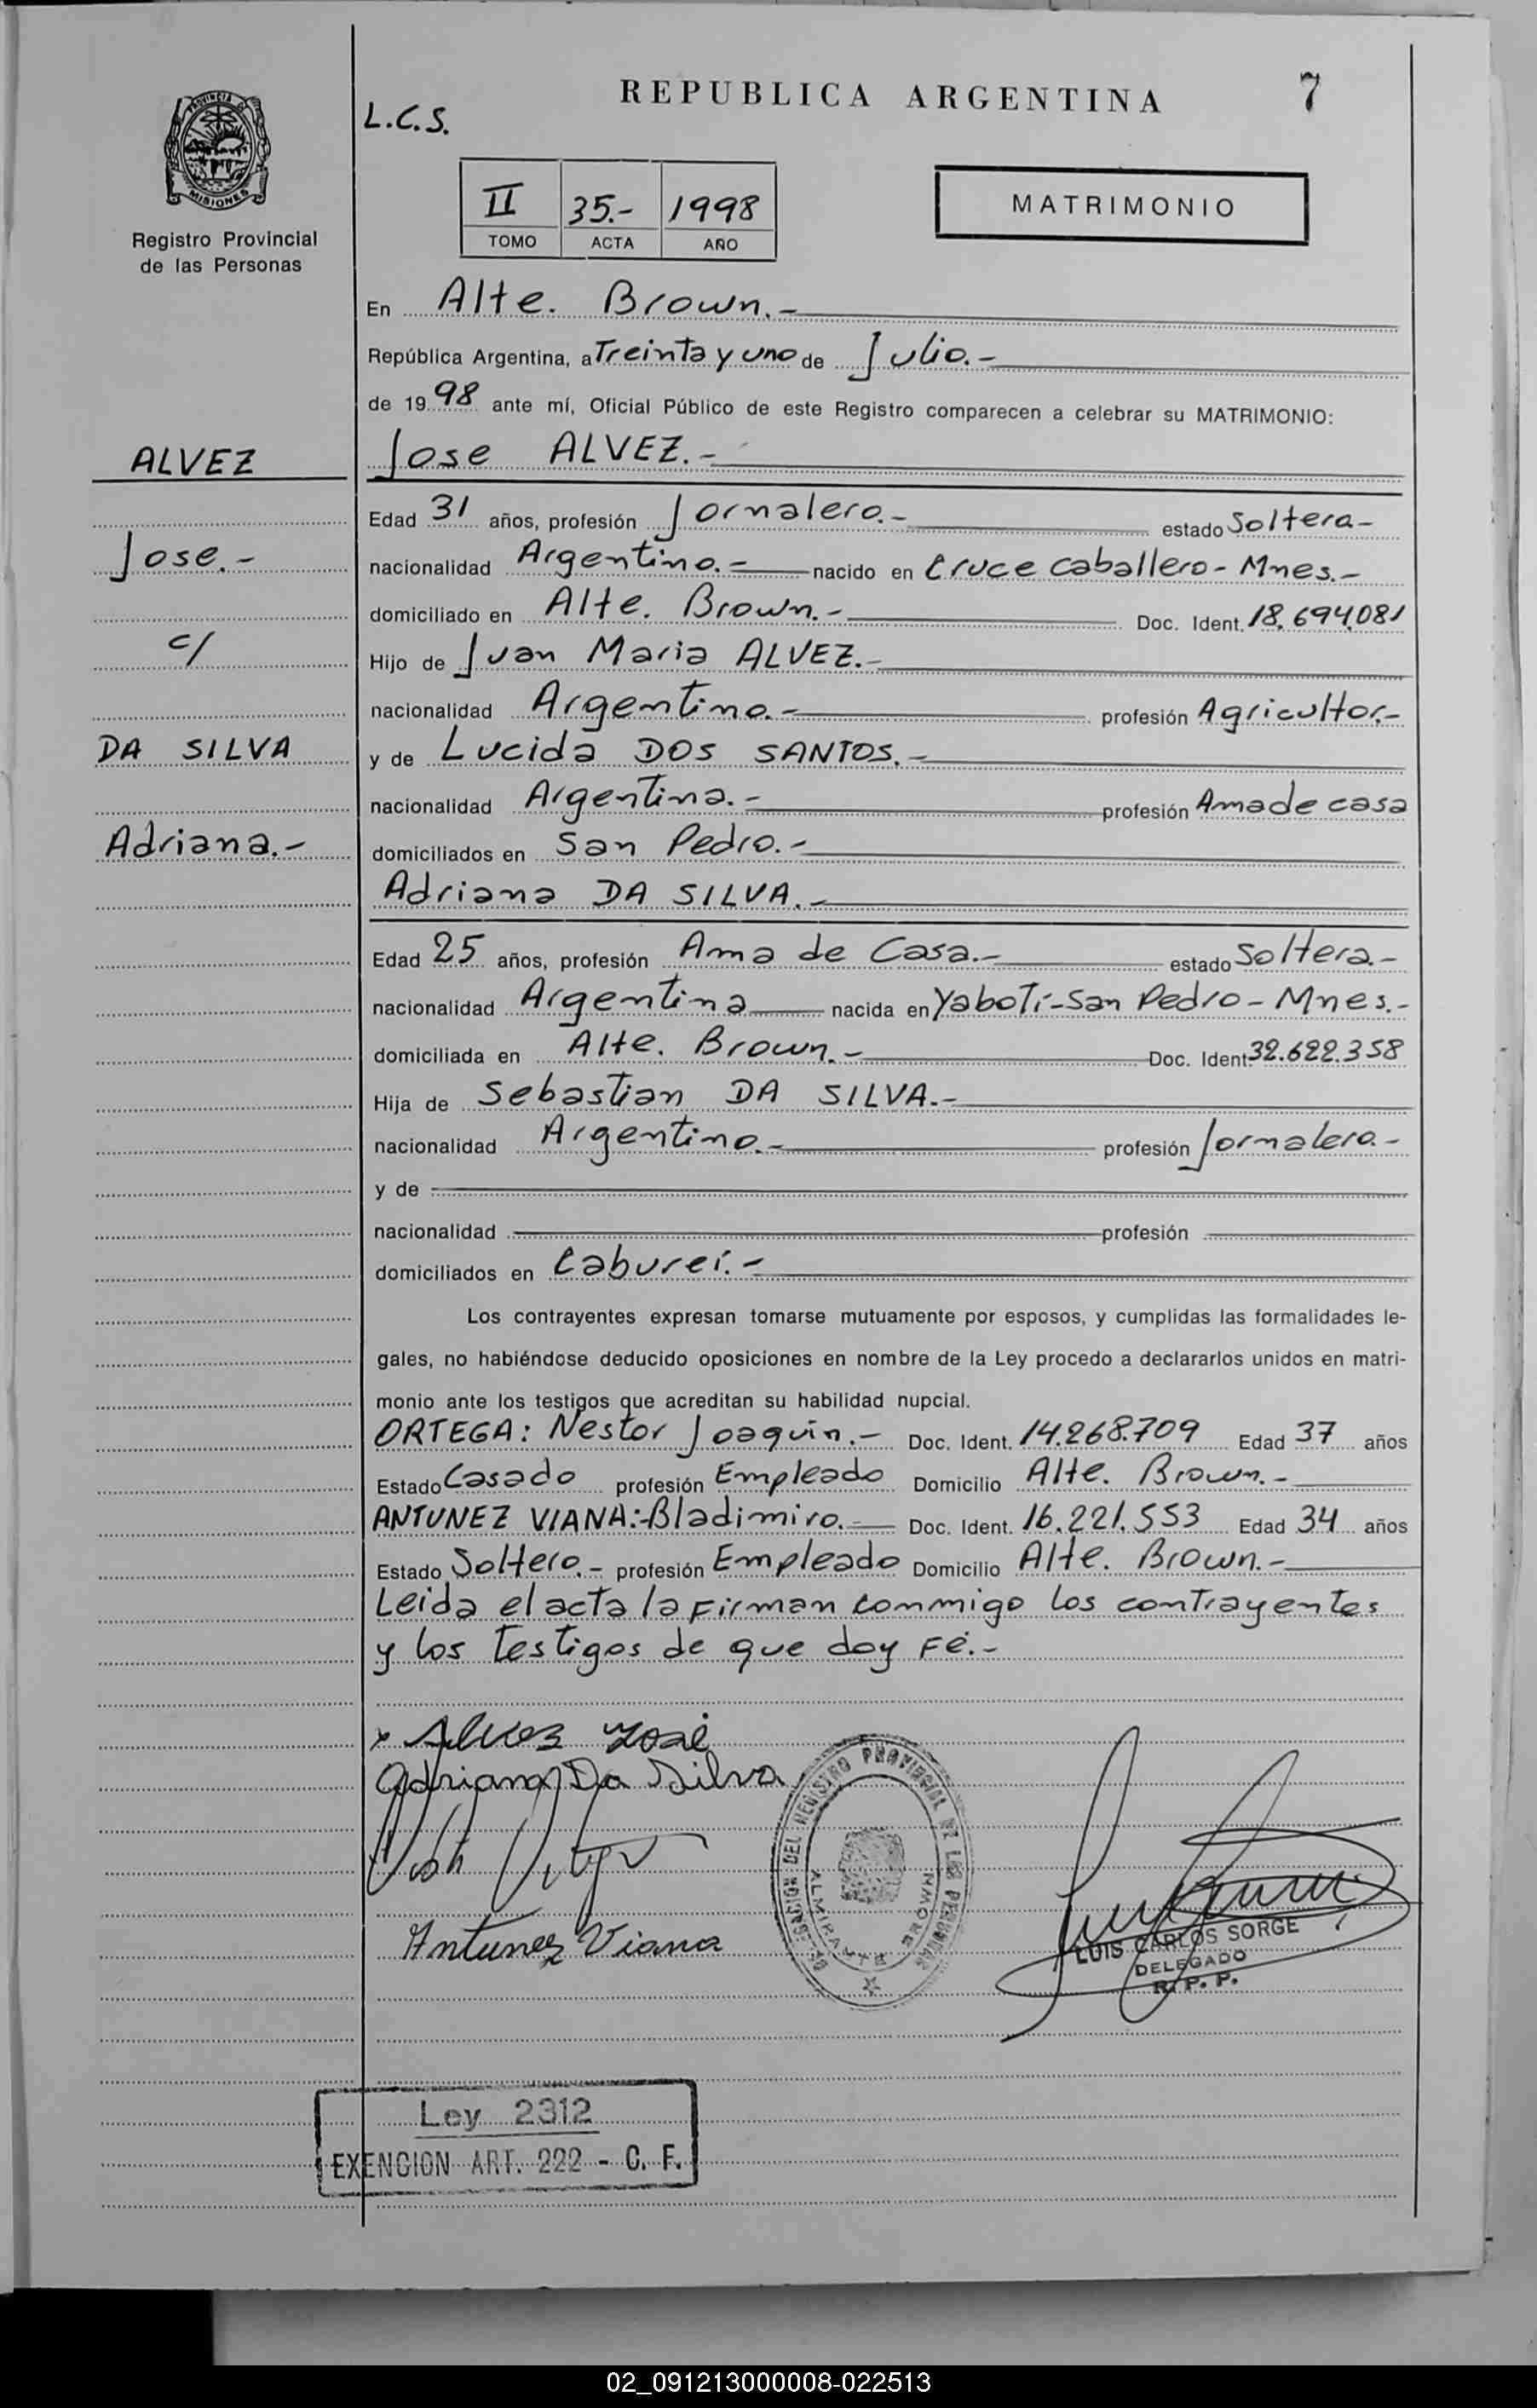 REPUBLICA ARGENTINA
7
L.C.S.
PROVINCIA DE
MISIONES
Registro Provincial
de las Personas
II 35.- 1998
TOMO ACTA AÑO
MATRIMONIO
En Alte. Brown.-
República Argentina, a Treinta y uno de Julio.-
de 19 98 ante mí, Oficial Público de este Registro comparecen a celebrar su MATRIMONIO:
ALVEZ
Jose.-
c/
DA SILVA
Adriana.-
Jose ALVEZ.-
Edad 31 años, profesión Jornalero.- estado Soltera-
nacionalidad Argentino.- nacido en Cruce Caballero- Mnes.-
domiciliado en Alte. Brown.- Doc. Ident. 18.694.081
Hijo de Juan Maria ALVEZ.-
nacionalidad Argentino.- profesión Agricultor.-
y de Lucida DOS SANTOS.-
nacionalidad Argentina.- profesión Ama de casa
domiciliados en San Pedro.-
Adriana DA SILVA.-
Edad 25 años, profesión Ama de Casa.- estado Soltera.-
nacionalidad Argentina nacida en Yabotí-San Pedro- Mnes.-
domiciliada en Alte. Brown.- Doc. Ident. 32.622.358
Hija de Sebastian DA SILVA.-
nacionalidad Argentino.- profesión Jornalero.-
y de
nacionalidad profesión
domiciliados en Cabureí.-
Los contrayentes expresan tomarse mutuamente por esposos, y cumplidas las formalidades le-
gales, no habiéndose deducido oposiciones en nombre de la Ley procedo a declararlos unidos en matri-
monio ante los testigos que acreditan su habilidad nupcial.
ORTEGA: Nestor Joaquin.- Doc. Ident. 14.268.709 Edad 37 años
Estado Casado profesión Empleado Domicilio Alte. Brown.-
ANTUNEZ VIANA:-Bladimiro.- Doc. Ident. 16.221.553 Edad 34 años
Estado Soltero.- profesión Empleado Domicilio Alte. Brown.-
Leida el acta la Firman conmigo los contrayentes
y los testigos de que doy Fé.-
x Alvez José
Adriana Da Silva
Antunez Viana
DELEGACION DEL REGISTRO PROVINCIAL DE LAS PERSONAS
ALMIRANTE BROWN
LUIS CARLOS SORGE
DELEGADO
R. P. P.
Ley 2312
EXENCION ART. 222 - C. F.
02_091213000008-022513